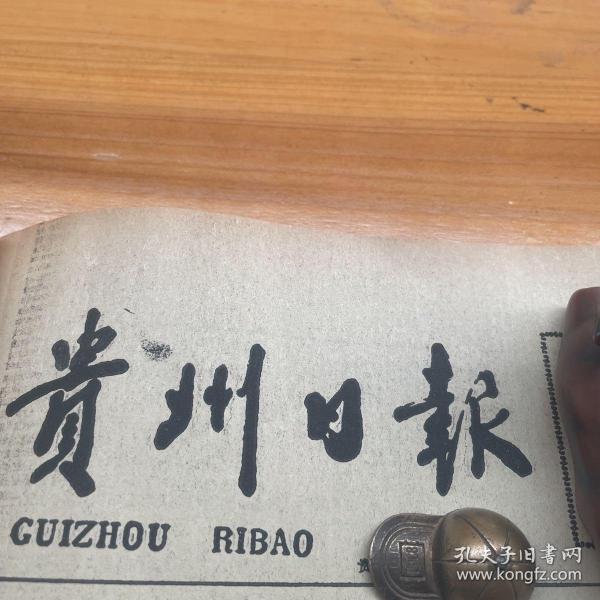 貴州日報
GUIZHOU RIBAO
孔夫子旧书网
www.kongfz.com